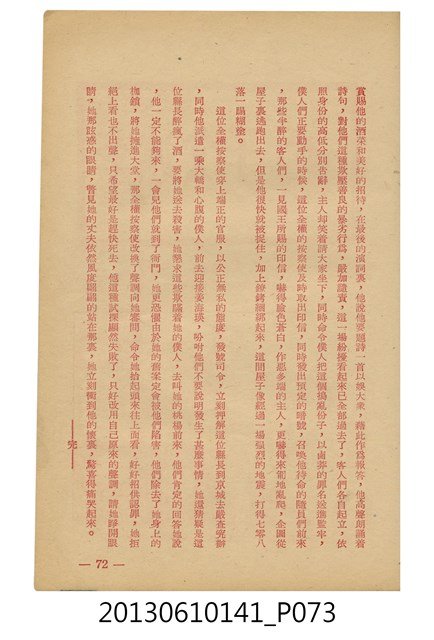 賞賜他的酒菜和美好的招待，在最後的演詞裏，他說他要題詩一首以娛大衆，藉此作爲報答，他高聲朗誦着
詩句，對他們這種欺壓善良的暴劣行爲，嚴加譴責，這一場紛擾看起來已全部過去了，客人們各自起立，依
照身份的高低分別告辭，主人却笑着請大家坐下，同時命令僕人把這個搗亂份子，以鹵莽的罪名送進監牢，
僕人們正要動手的時候，這位全權的按察使及時取出印信，同時發出預定的暗號，召喚他待命的隨員們前來
，那些半醉的客人們，一見國王所賜的印信，嚇得臉色蒼白，作惡多端的主人，更嚇得來匍地亂爬，企圖從
屋子裏逃跑出去，但是他很快就被捉住，加上鐐銬綑綁起來，這間屋子像經過一場强烈的地震，打得七零八
落一塌糊塗。
這位全權按察使穿上端正的官服，以公正無私的態度，發號司令，立刻押解這位縣長到京城去嚴查究辦
，同時他派遣一乘大轎和心腹的僕人，前去迎接姜海瑛，吩咐他們不要說明發生了甚麼事情，她還猜疑是這
位縣長醉瘋了酒，要將她送去殺害，她懇求這些欺瞞着她的僕人，去叫她的媽媽前來，他們肯定的回答她說
，他一定不能夠來，一會兒他們就到了衙門，她更恐懼由於她的舊案定會被他們陷害，他們除去了她身上的
枷鎖，將她擁進大堂，那全權按察使改換了聲調向她審問，命令她抬起頭來往上面看，好好招供認罪，她拒
絕上看也不出聲，只希望最好是趕快死去，他這種試探顯然失敗了，只好改用自己原來的聲調，請她睜開眼
睛，她那疑惑的眼睛，瞥見她的丈夫依然風度翩翩的站在那裏，她立刻倒到他的懷裏，驚喜得痛哭起來。
——完——
— 72 —
20130610141_P073